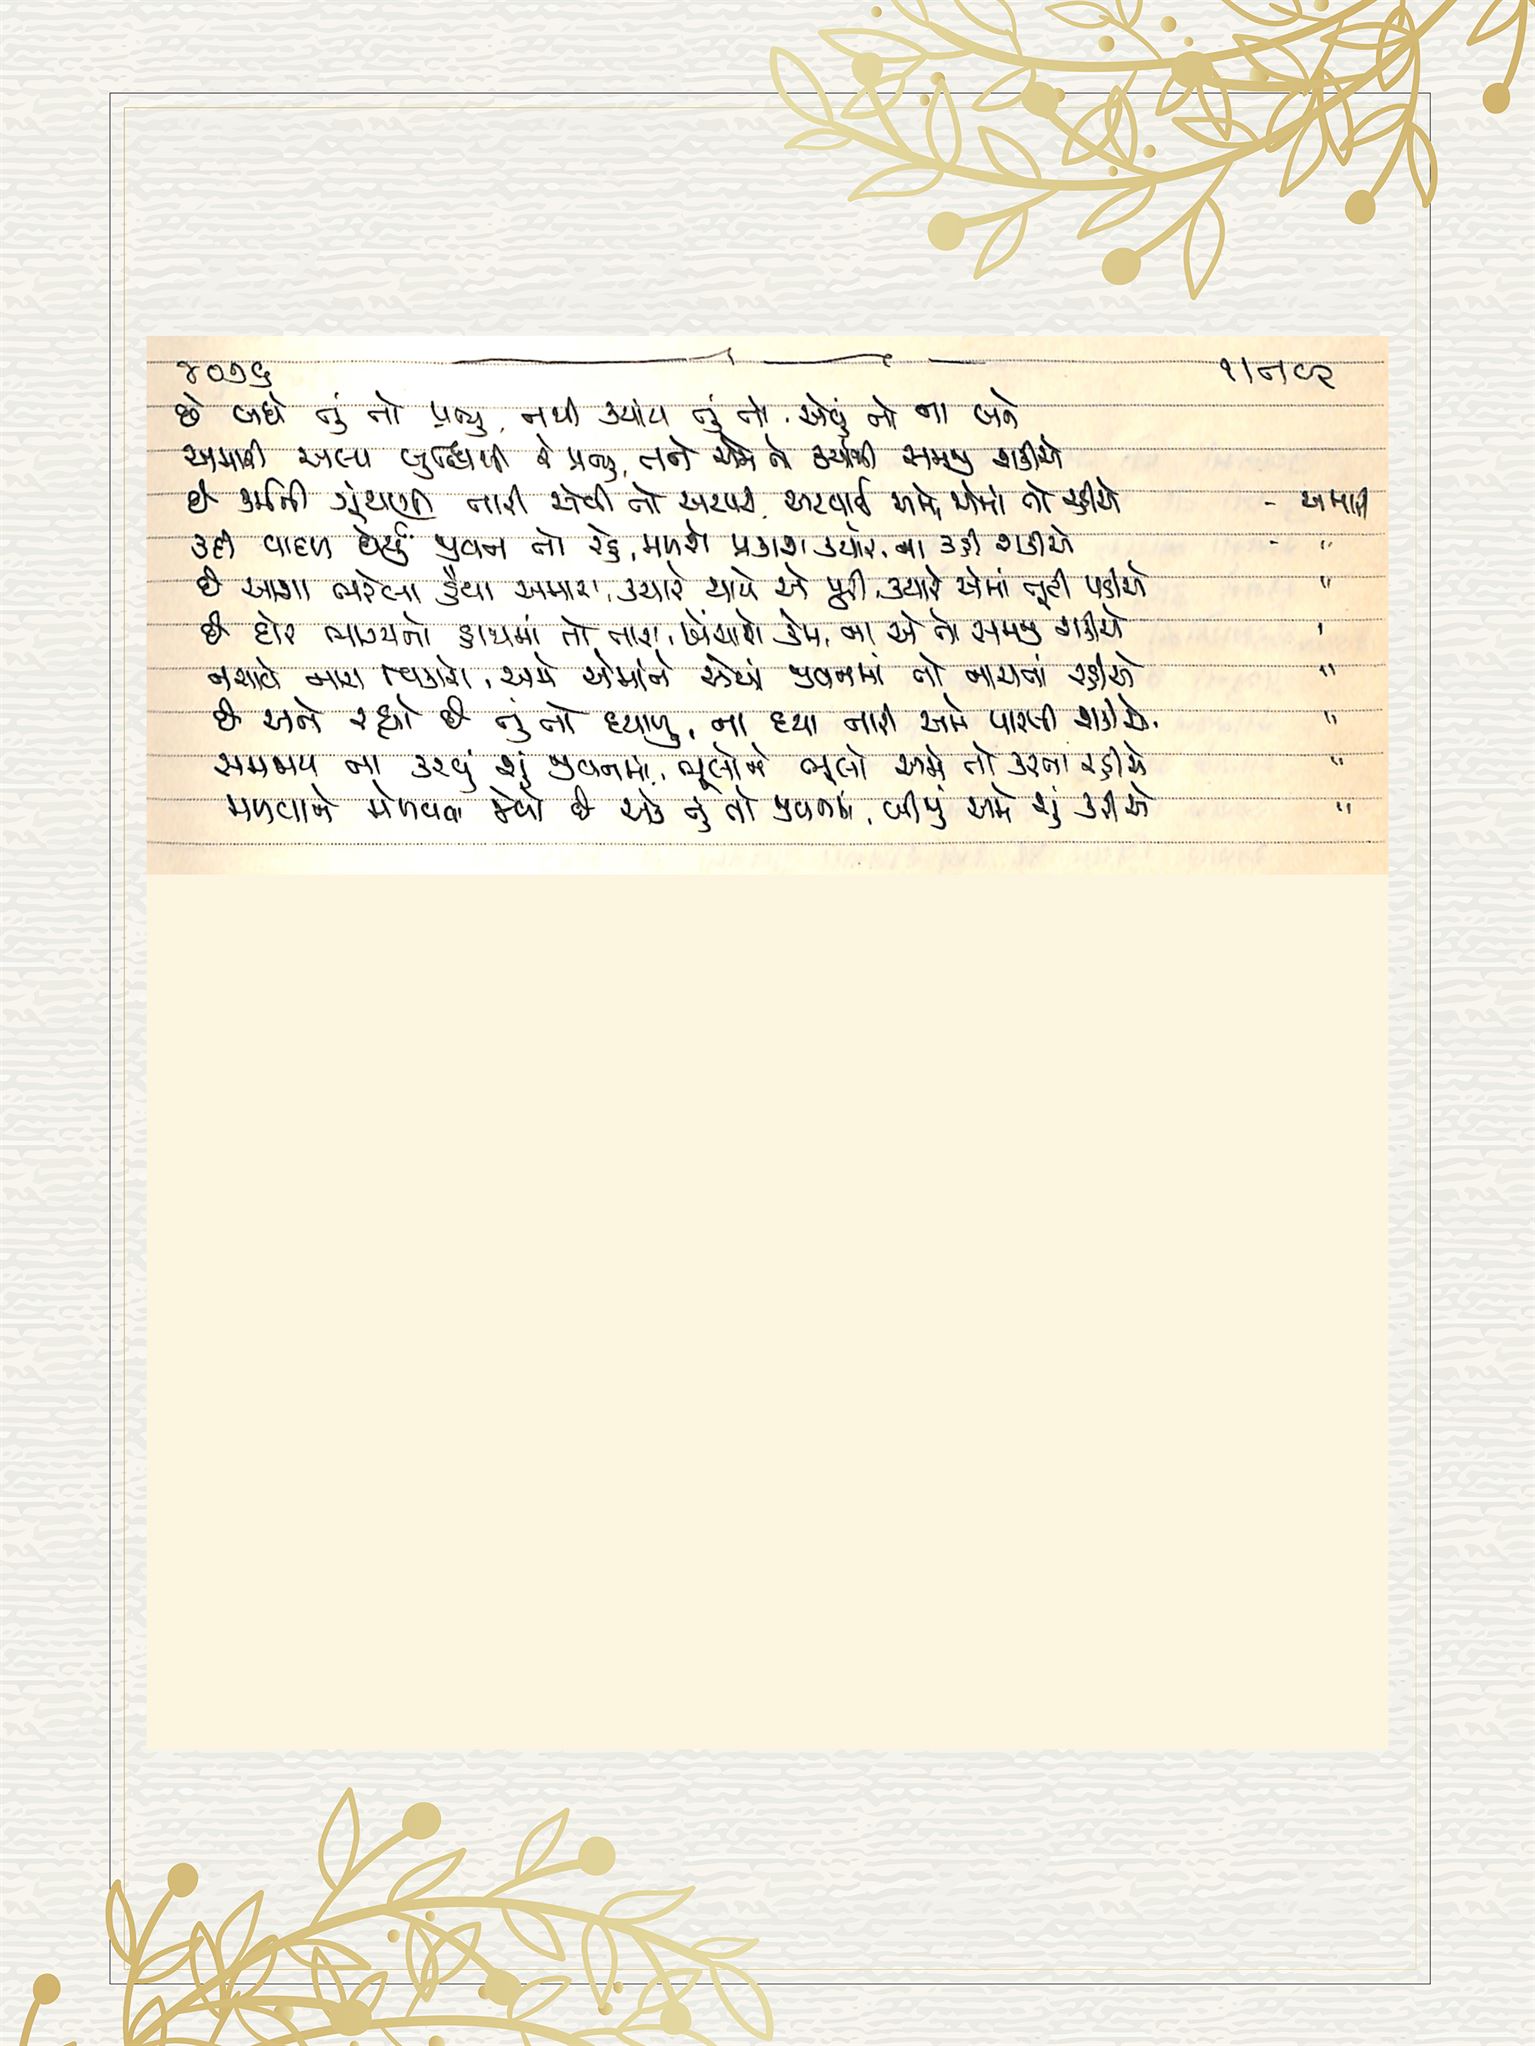 ૪૦૭૬ ૧।ન૯૨
છે બધે તું તો પ્રભુ, નથી ક્યાંય તું તો, એવું તો ના બને
અમારી અલ્પ બુદ્ધિથી રે પ્રભુ, તને અમે તો ક્યાંથી સમજી શકીએ
છે કર્મની ગૂંથણી તારી એવી તો અટપટી, અટવાઈ અમે એમાં તો જઈએ - અમારી
કદી વાદળ ઘેર્યું જીવન તો રહે, મળશે પ્રકાશ ક્યારે, ના કહી શકીએ - "
છે આશા ભરેલા હૈયા અમારા, ક્યારે થાયે એ પૂરી, ક્યારે એમાં તૂટી પડીએ "
છે દોર ભાગ્યનો હાથમાં તો તારા, ખેંચાશે કેમ, ના એ તો સમજી શકીએ '
નચાવે નાચ વિકારો, અમે એમાંને એમાં જીવનમાં તો નાચતાં રહીએ "
છે અને રહ્યો છે તું તો દયાળુ, ના દયા તારી અમે પારખી શકીએ. "
સમજાય ના કરવું શું જીવનમાં, ભૂલોને ભૂલો અમે તો કરતા રહીએ "
મળવાને મેળવવા જેવો છે એક તું તો જીવનમાં, બીજું અમે શું કરીએ "